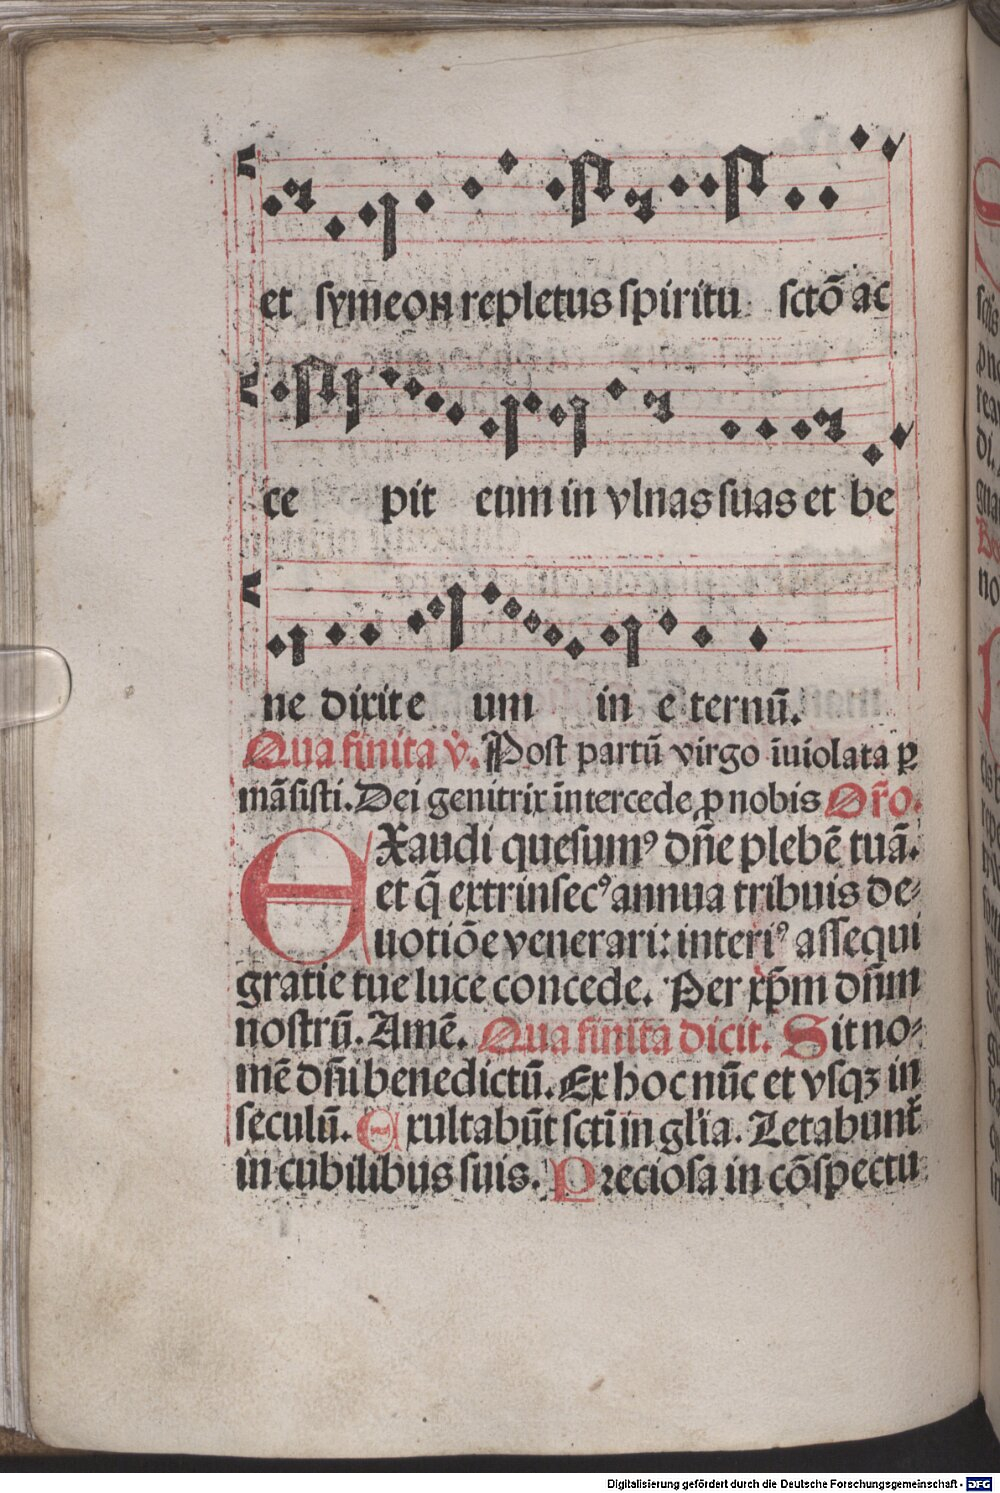 et symeon repletus spiritu sctō ac
ce pit eum in vlnas suas et be
ne dixit e um in e ternū.
Qua finita v̇. Post partū virgo īuiolata ꝑ
māsisti. Dei genitrix īntercede ꝓ nobis Or̄o.
EXaudi quesumꝰ dn̄e plebē tuā.
et q̄ extrinsecꝰ annua tribuis de⸗
uotiōe venerari: interiꝰ assequi
gratie tue luce concede. Per xp̄m dn̄m
nostrū. Amē. Qua finita dicit. Sit no⸗
mē dn̄i benedictū. Ex hoc nūc et vsqꝫ in
seculū. Exultabūt sctī in gl̄ia. Letabunt̄
in cubilibus suis. Preciosa in cōspectu
Digitalisierung gefördert durch die Deutsche Forschungsgemeinschaft - DFG